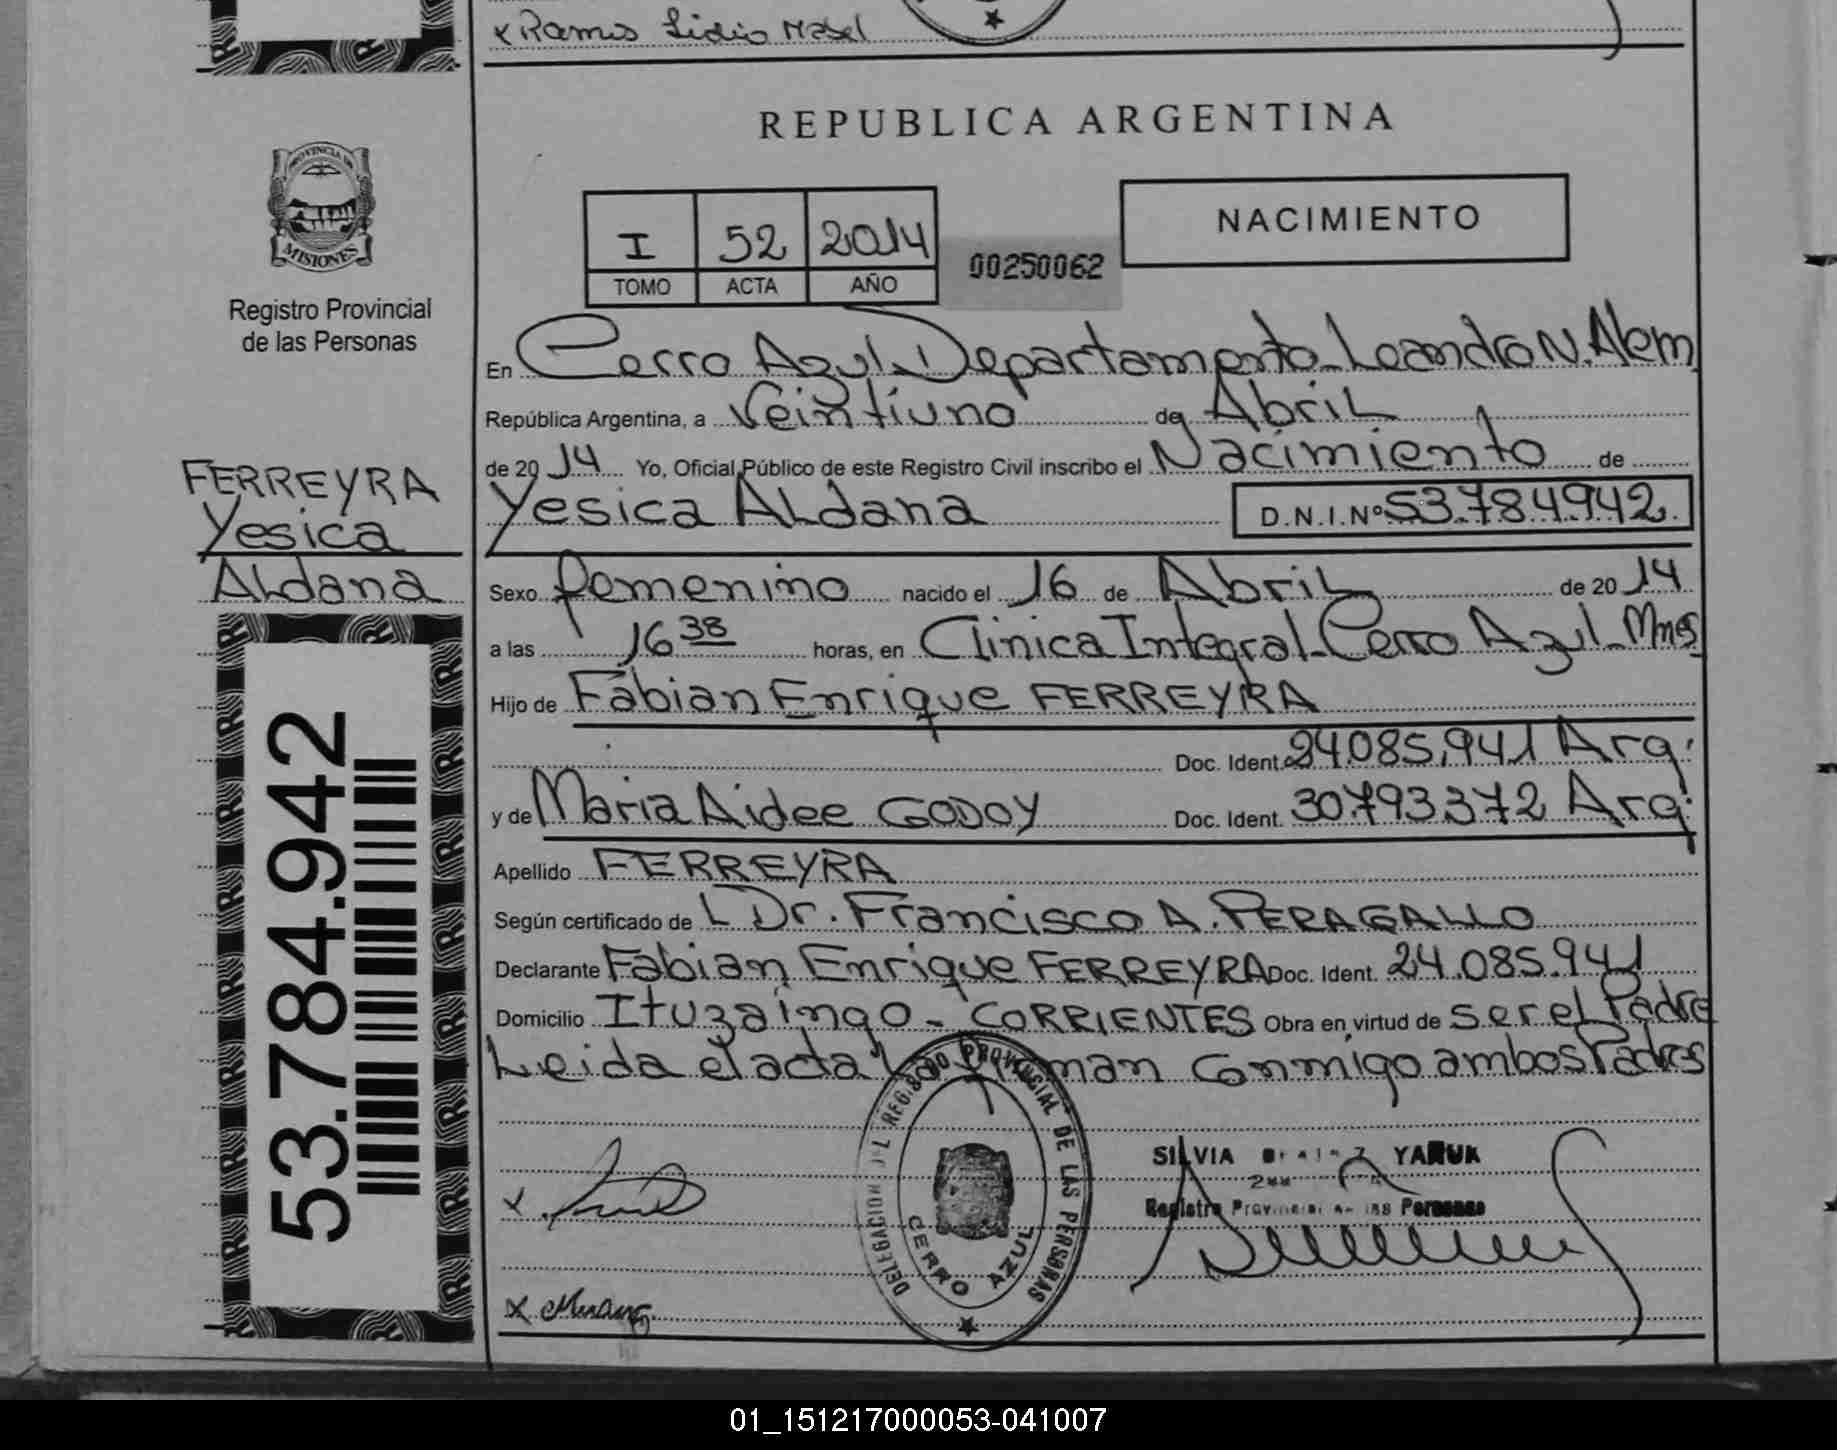 x Ramos Lidia Mabel
REPUBLICA ARGENTINA
PROVINCIA DE
MISIONES
Registro Provincial
de las Personas
I 52 2014
TOMO ACTA AÑO
00250062
NACIMIENTO
En Cerro Azul Departamento Leandro N. Alem
República Argentina, a Veintiuno de Abril
de 2014 Yo, Oficial Público de este Registro Civil inscribo el Nacimiento de
Yesica Aldana D.N.I.Nº 53.784942
FERREYRA
Yesica
Aldana
Sexo femenino nacido el 16 de Abril de 2014
a las 16 38 horas, en Clinica Integral Cerro Azul Mnes
Hijo de Fabian Enrique FERREYRA
Doc. Ident. 24.085.941 Arg.
y de Maria Aidee GODOY Doc. Ident. 30.793.372 Arg.
Apellido FERREYRA
Según certificado de L Dr. Francisco A. PERAGALLO
Declarante Fabian Enrique FERREYRA Doc. Ident. 24.085.941
Domicilio Ituzaingo - CORRIENTES Obra en virtud de ser el Padre
Leida el acta la firman conmigo ambos Padres
53.784.942
DELEGACION DEL REGISTRO PROVINCIAL DE LAS PERSONAS
CERRO AZUL
SILVIA YARUK
Registro Provincial de las Personas
x
x
01_151217000053-041007